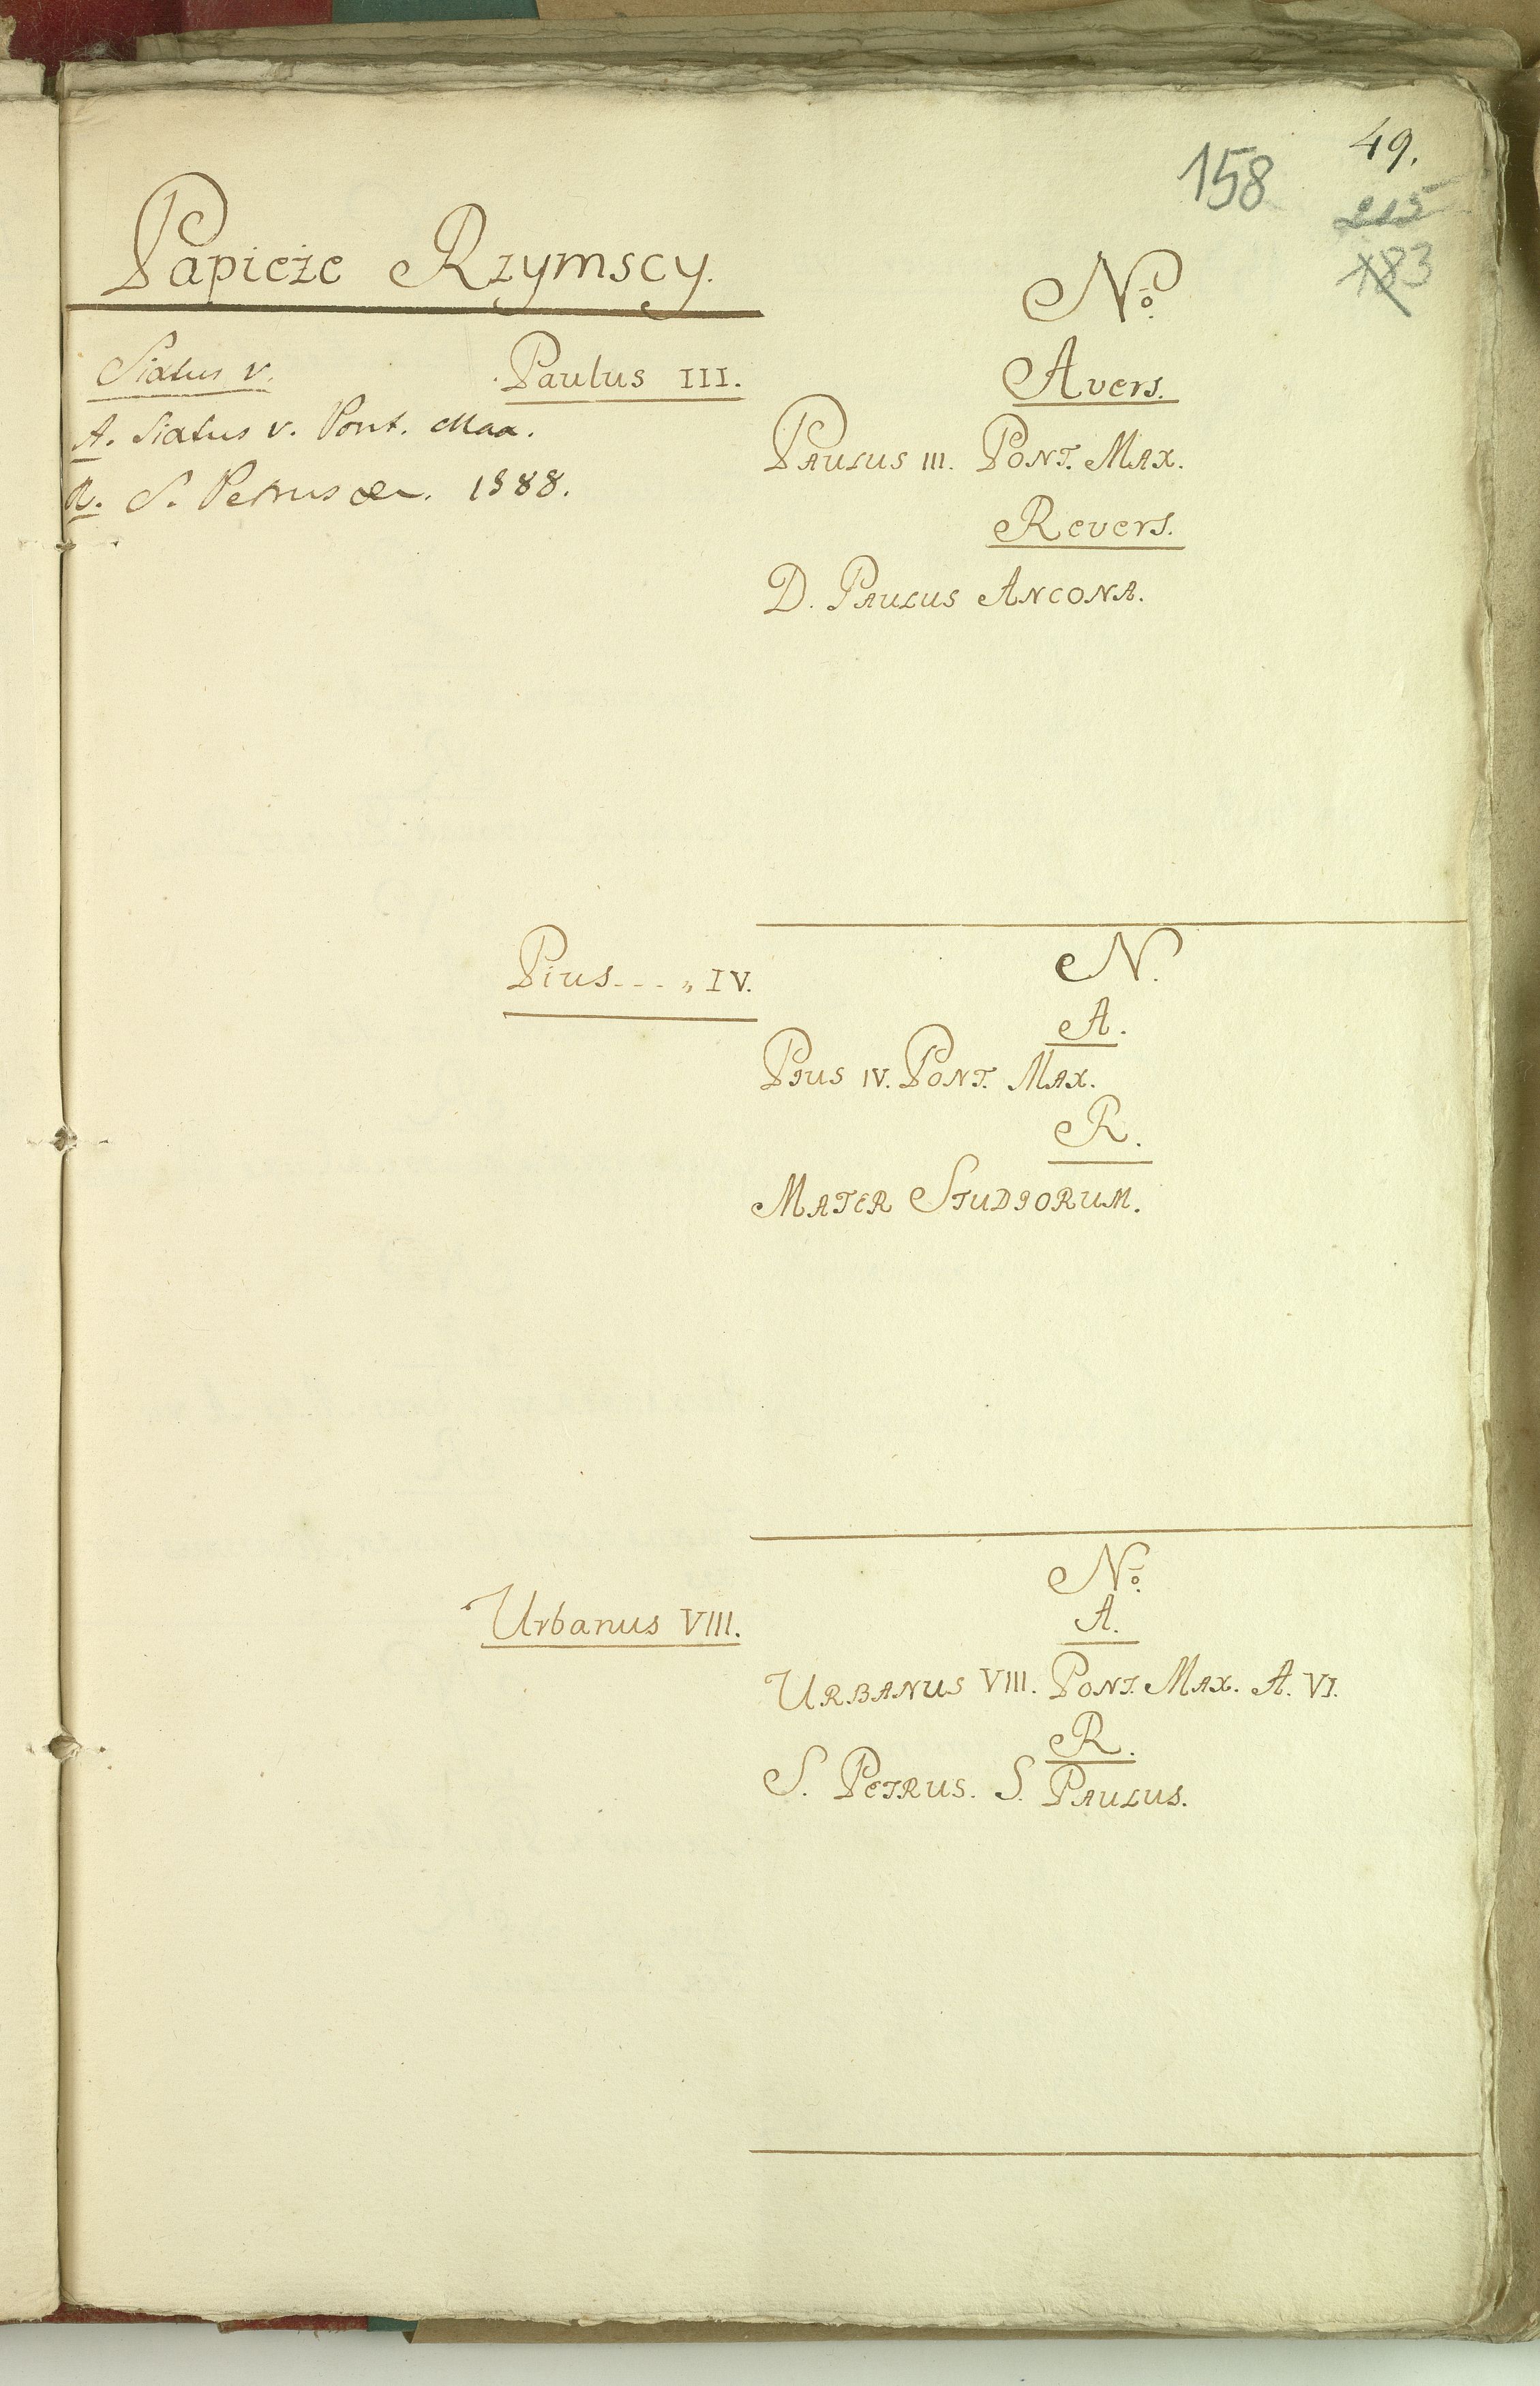 49.
158
215
183
Papieże Rzymscy.
Nº
Sixtus v.
Paulus III.
Avers.
A. Sixtus v. Pont. Max.
PAULUS III. PONT. MAX.
R. S. Petrus &c. 1588.
Revers.
D. PAULUS ANCONA.
Pius - - - „ IV.
N.
A.
PIUS IV. PONT. MAX.
R.
MATER STUDIORUM.
Nº
Urbanus VIII.
A.
URBANUS VIII. PONT. MAX. A. VI.
R.
S. PETRUS. S. PAULUS.